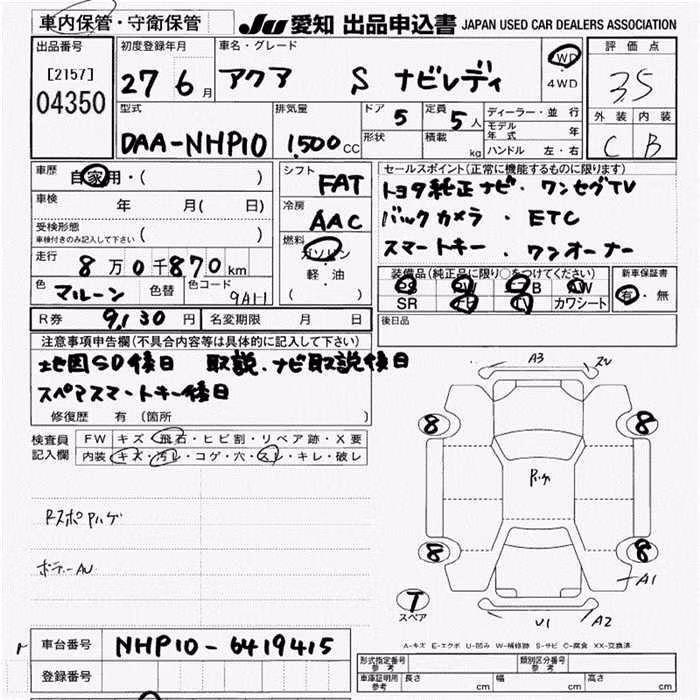 車内保管・守衛保管 JU 愛知 出品申込書 JAPAN USED CAR DEALERS ASSOCIATION
出品番号 初度登録年月 車名・グレード 評価点
[2157] 27 6月 アクア S ナビレディ 2WD・4WD 3.5
04350
型式 排気量 ドア 5 定員 5人 ディーラー・並行 外装 内装
DAA-NHP10 1.500CC 形状 積載 kg モデル年式 年 C B
ハンドル 左・右
車歴 自家用・( ) シフト FAT セールスポイント(正常に機能するものに限ります)
車検 年 月( 日) 冷房 AAC トヨタ純正ナビ・ワンセグTV
受検形態 車検付きのみ記入して下さい ( ) バックカメラ・ETC
走行 8万0千870km 燃料 ガソリン・軽油 ( ) スマートキー・ワンオーナー
色 マルーン 色替 色コード 装備品(純正品に限り○をつけてください) 新車保証書
PS PW AW 有・無
SR TV カワシート
R券 9,130円 名変期限 月 日 後日品
注意事項申告欄(不具合内容等は具体的に記入して下さい)
地図SD後日 取説、ナビ取説後日
スペアスマートキー後日
修復歴 有 (箇所 )
検査員記入欄 FW キズ・飛石・ヒビ割・リペア跡・X要
内装 キズ・汚レ・コゲ・穴・スレ・キレ・破レ
A3
8 8
8 8
A1
T
スペア
U1 A2
A-キズ E-エクボ U-凹み W-補修跡 S-サビ C-腐食 XX-交換済
車台番号 NHP10-6419415
登録番号
型式指定番号 参考 類別区分番号 参考
車庫証明用 参考 長さ cm 幅 cm 高さ cm